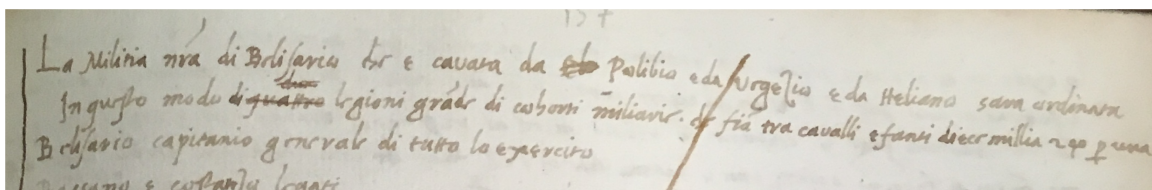 La Militia nrã di Belisario che e cavata da Polibio e da Vegetio e da Heliano sara ordinata
In questo modo di quattro due legioni grãde di cohorti miliarie. che fia tra cavalli e fanti diece millia 240 p una
Belisario capitanio generale di tutto lo exercito
e costantio legati